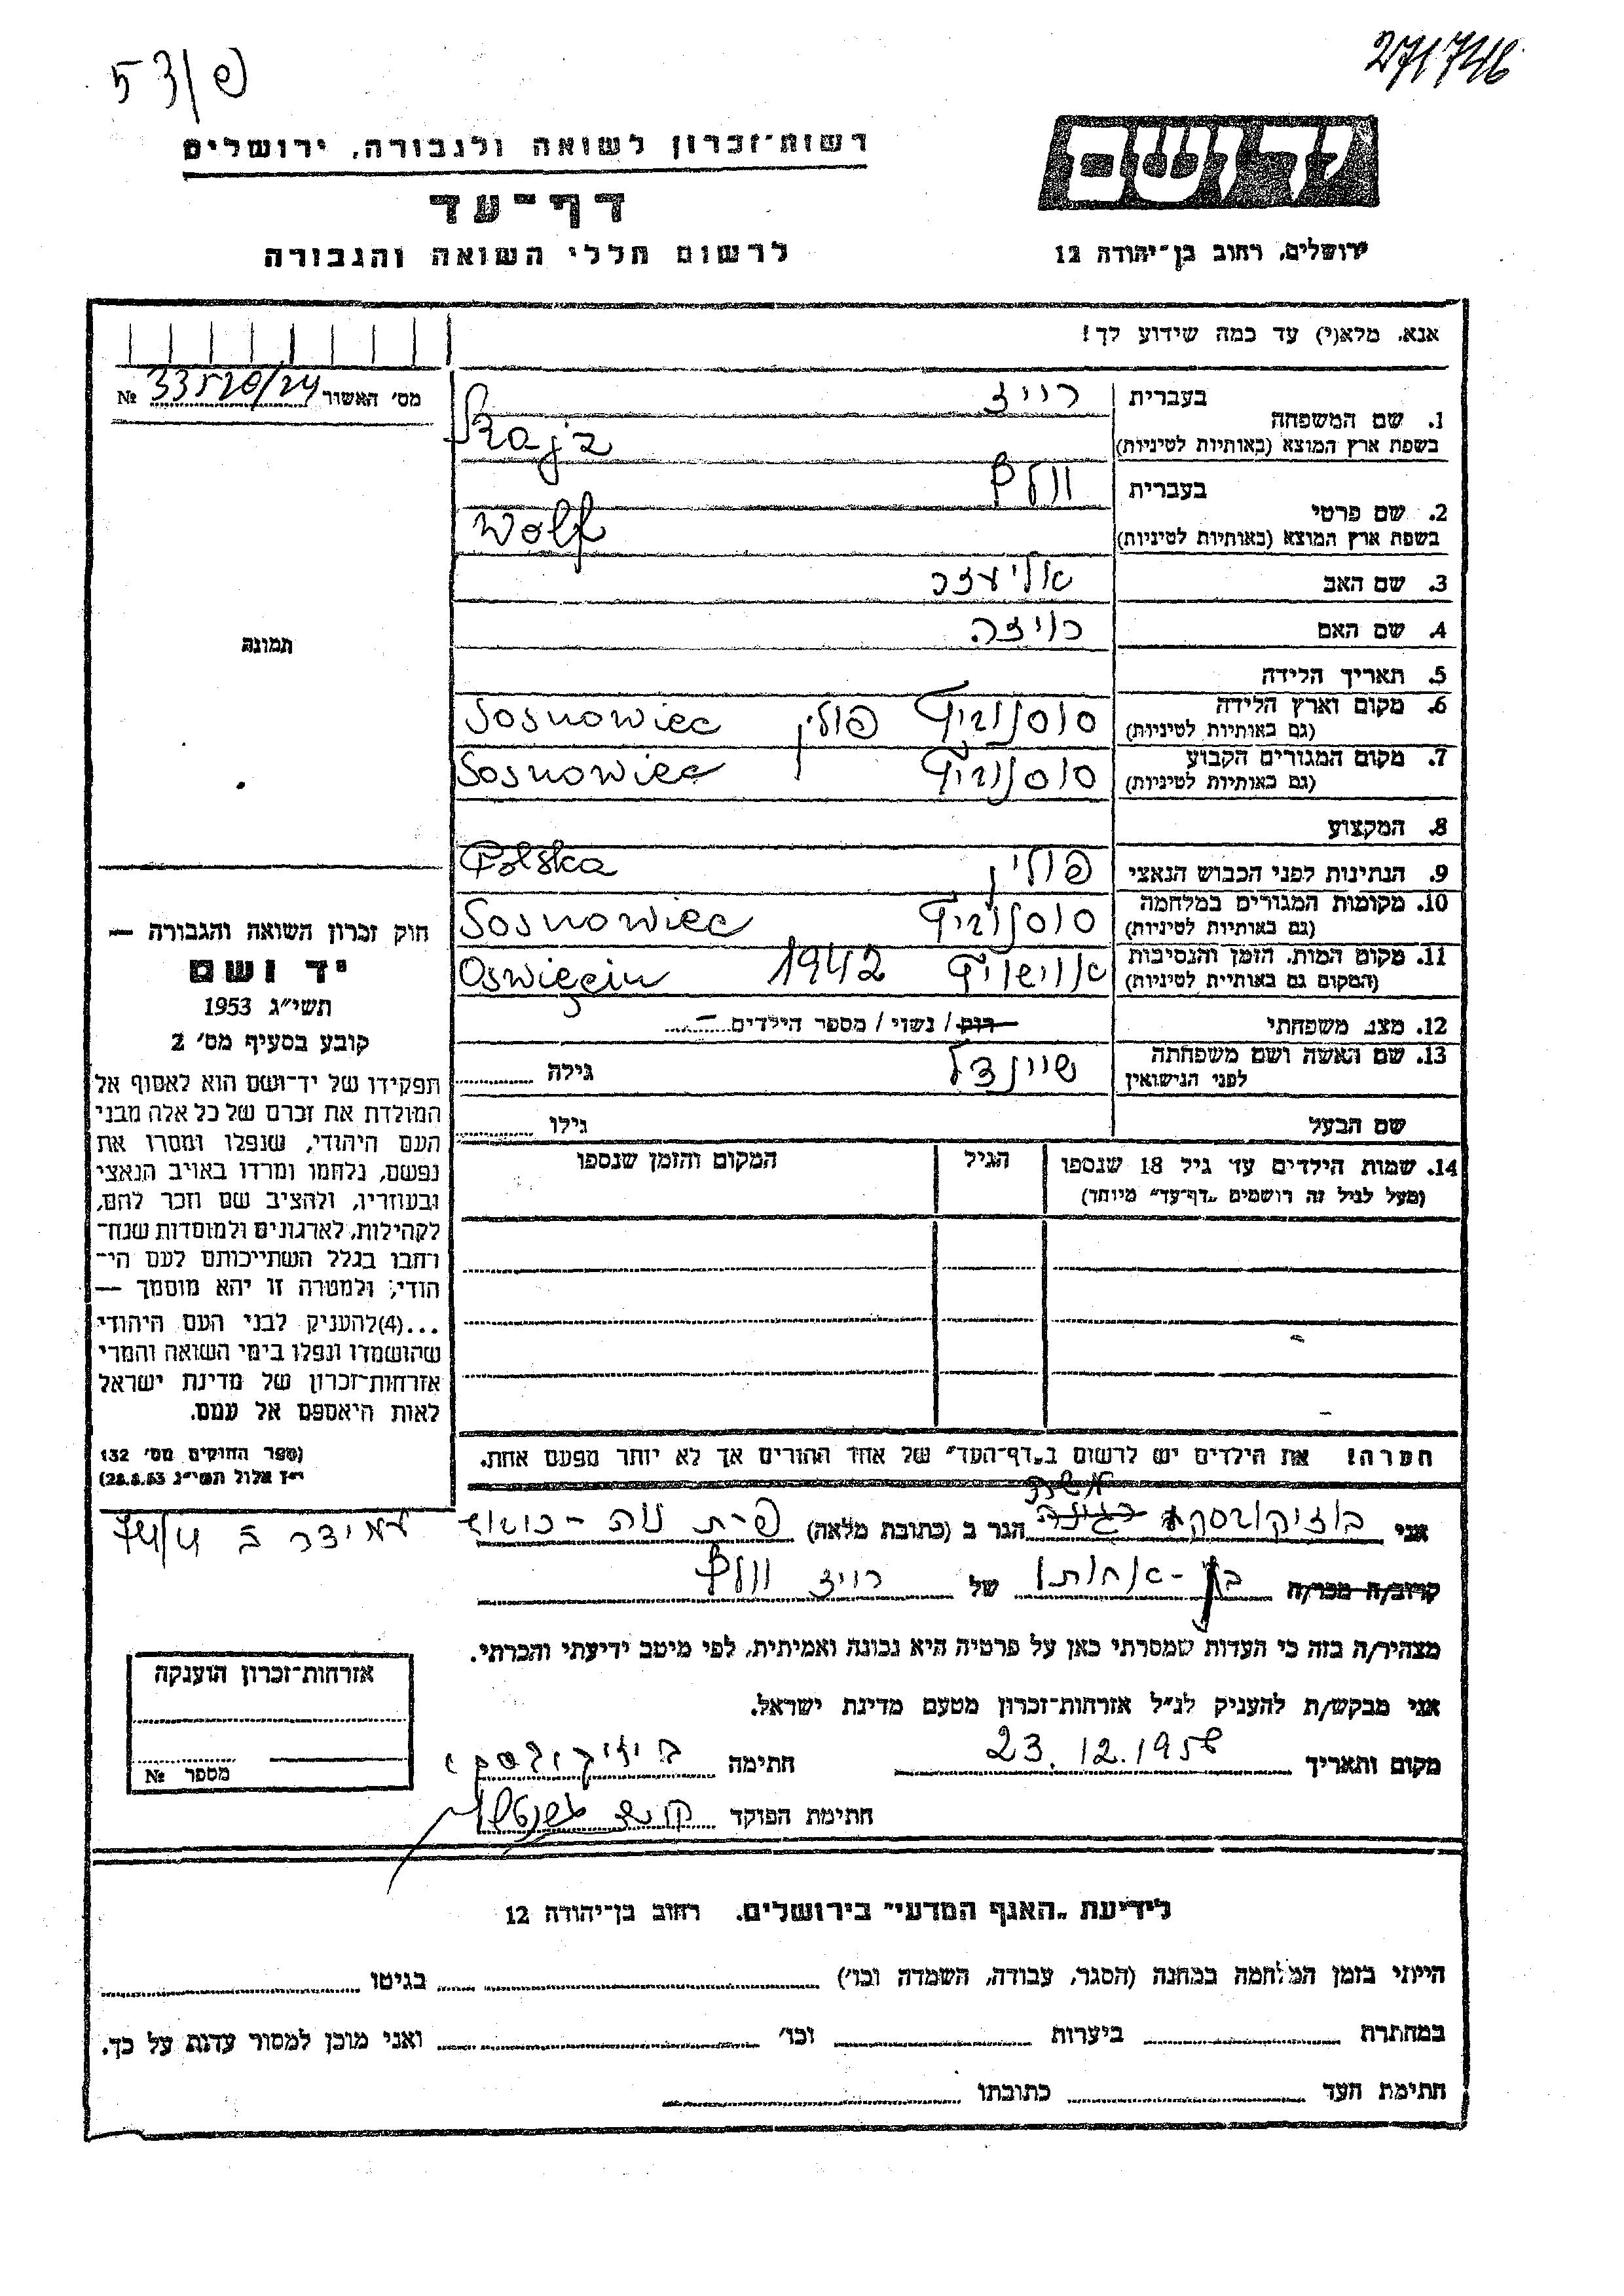 271746
53/פ
יד ושם
רשות־זכרון לשואה ולגבורה, ירושלים
דף־עד
לרשום חללי השואה והגבורה
ירושלים, רחוב בן־יהודה 12
אנא, מלא(י) עד כמה שידוע לך!
מס' האשור 33520/24 №
1. שם המשפחה בעברית רייז
בשפת ארץ המוצא (באותיות לטיניות) Rajz
2. שם פרטי בעברית וולף
בשפת ארץ המוצא (באותיות לטיניות) Wolf
3. שם האב אליעזר
4. שם האם רויזה
5. תאריך הלידה
6. מקום וארץ הלידה סוסנוביץ פולין Sosnowiec
(גם באותיות לטיניות)
7. מקום המגורים הקבוע סוסנוביץ Sosnowiec
(גם באותיות לטיניות)
8. המקצוע
9. הנתינות לפני הכבוש הנאצי פולין Polska
10. מקומות המגורים במלחמה סוסנוביץ Sosnowiec
(גם באותיות לטיניות)
11. מקום המות, הזמן והנסיבות אוישויץ 1942 Oswięcin
(המקום גם באותיות לטיניות)
12. מצב משפחתי רווק / נשוי / מספר הילדים –
13. שם האשה ושם משפחתה שיינדל גילה
לפני הנישואין
שם הבעל גילו
14. שמות הילדים עד גיל 18 שנספו הגיל המקום והזמן שנספו
(מעל לגיל זה רושמים „דף־עד" מיוחד)
תמונה
חוק זכרון השואה והגבורה —
יד ושם
תשי"ג 1953
קובע בסעיף מס' 2
תפקידו של יד־ושם הוא לאסוף אל
המולדת את זכרם של כל אלה מבני
העם היהודי, שנפלו ומסרו את
נפשם, נלחמו ומרדו באויב הנאצי
ובעוזריו, ולהציב שם וזכר להם,
לקהילות, לארגונים ולמוסדות שנח־
רחבו בגלל השתייכותם לעם הי־
הודי; ולמטרה זו יהא מוסמך —
...(4)להעניק לבני העם היהודי
שהושמדו ונפלו בימי השואה והמרי
אזרחות־זכרון של מדינת ישראל
לאות היאספם אל עמם.
(ספר החוקים מס' 132
י"ז אלול תשי"ג 28.8.53)
הערה! את הילדים יש לרשום ב„דף־העד" של אחד ההורים אך לא יותר מפעם אחת.
אני הגר ב (כתובת מלאה) פ–ת עמידר ב 74/4
קרוב/ה מכר/ה בן-אחותו של רויז וולף
מצהיר/ה בזה כי העדות שמסרתי כאן על פרטיה היא נכונה ואמיתית, לפי מיטב ידיעתי והכרתי.
אני מבקש/ת להעניק לנ"ל אזרחות־זכרון מטעם מדינת ישראל.
מקום ותאריך 23.12.1956 חתימה
חתימת הפוקד
אזרחות־זכרון הוענקה
מספר №
לידיעת „האגף המדעי" בירושלים, רחוב בן־יהודה 12
הייתי בזמן המלחמה במחנה (הסגר, עבודה, השמדה וכו') בגיטו
במחתרת ביערות וכו' ואני מוכן למסור עדות על כך.
חתימת העד כתובתו